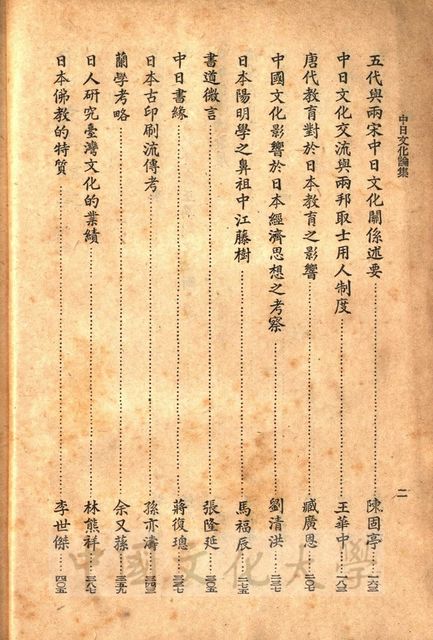 中日文化論集
二
五代與兩宋中日文化關係述要 陳固亭 一六三
中日文化交流與兩邦取士用人制度 王華中 一八三
唐代教育對於日本教育之影響 臧廣恩 二〇七
中國文化影響於日本經濟思想之考察 劉清洪 二三七
日本陽明學之鼻祖中江藤樹 馬福辰 二七五
書道微言 張隆延 三〇五
中日書緣 蔣復璁
日本古印刷流傳考 孫亦濤
蘭學考略 余又蓀 三五九
日人研究臺灣文化的業績 林熊祥 三八七
日本佛教的特質 李世傑 四〇五
中國文化大學